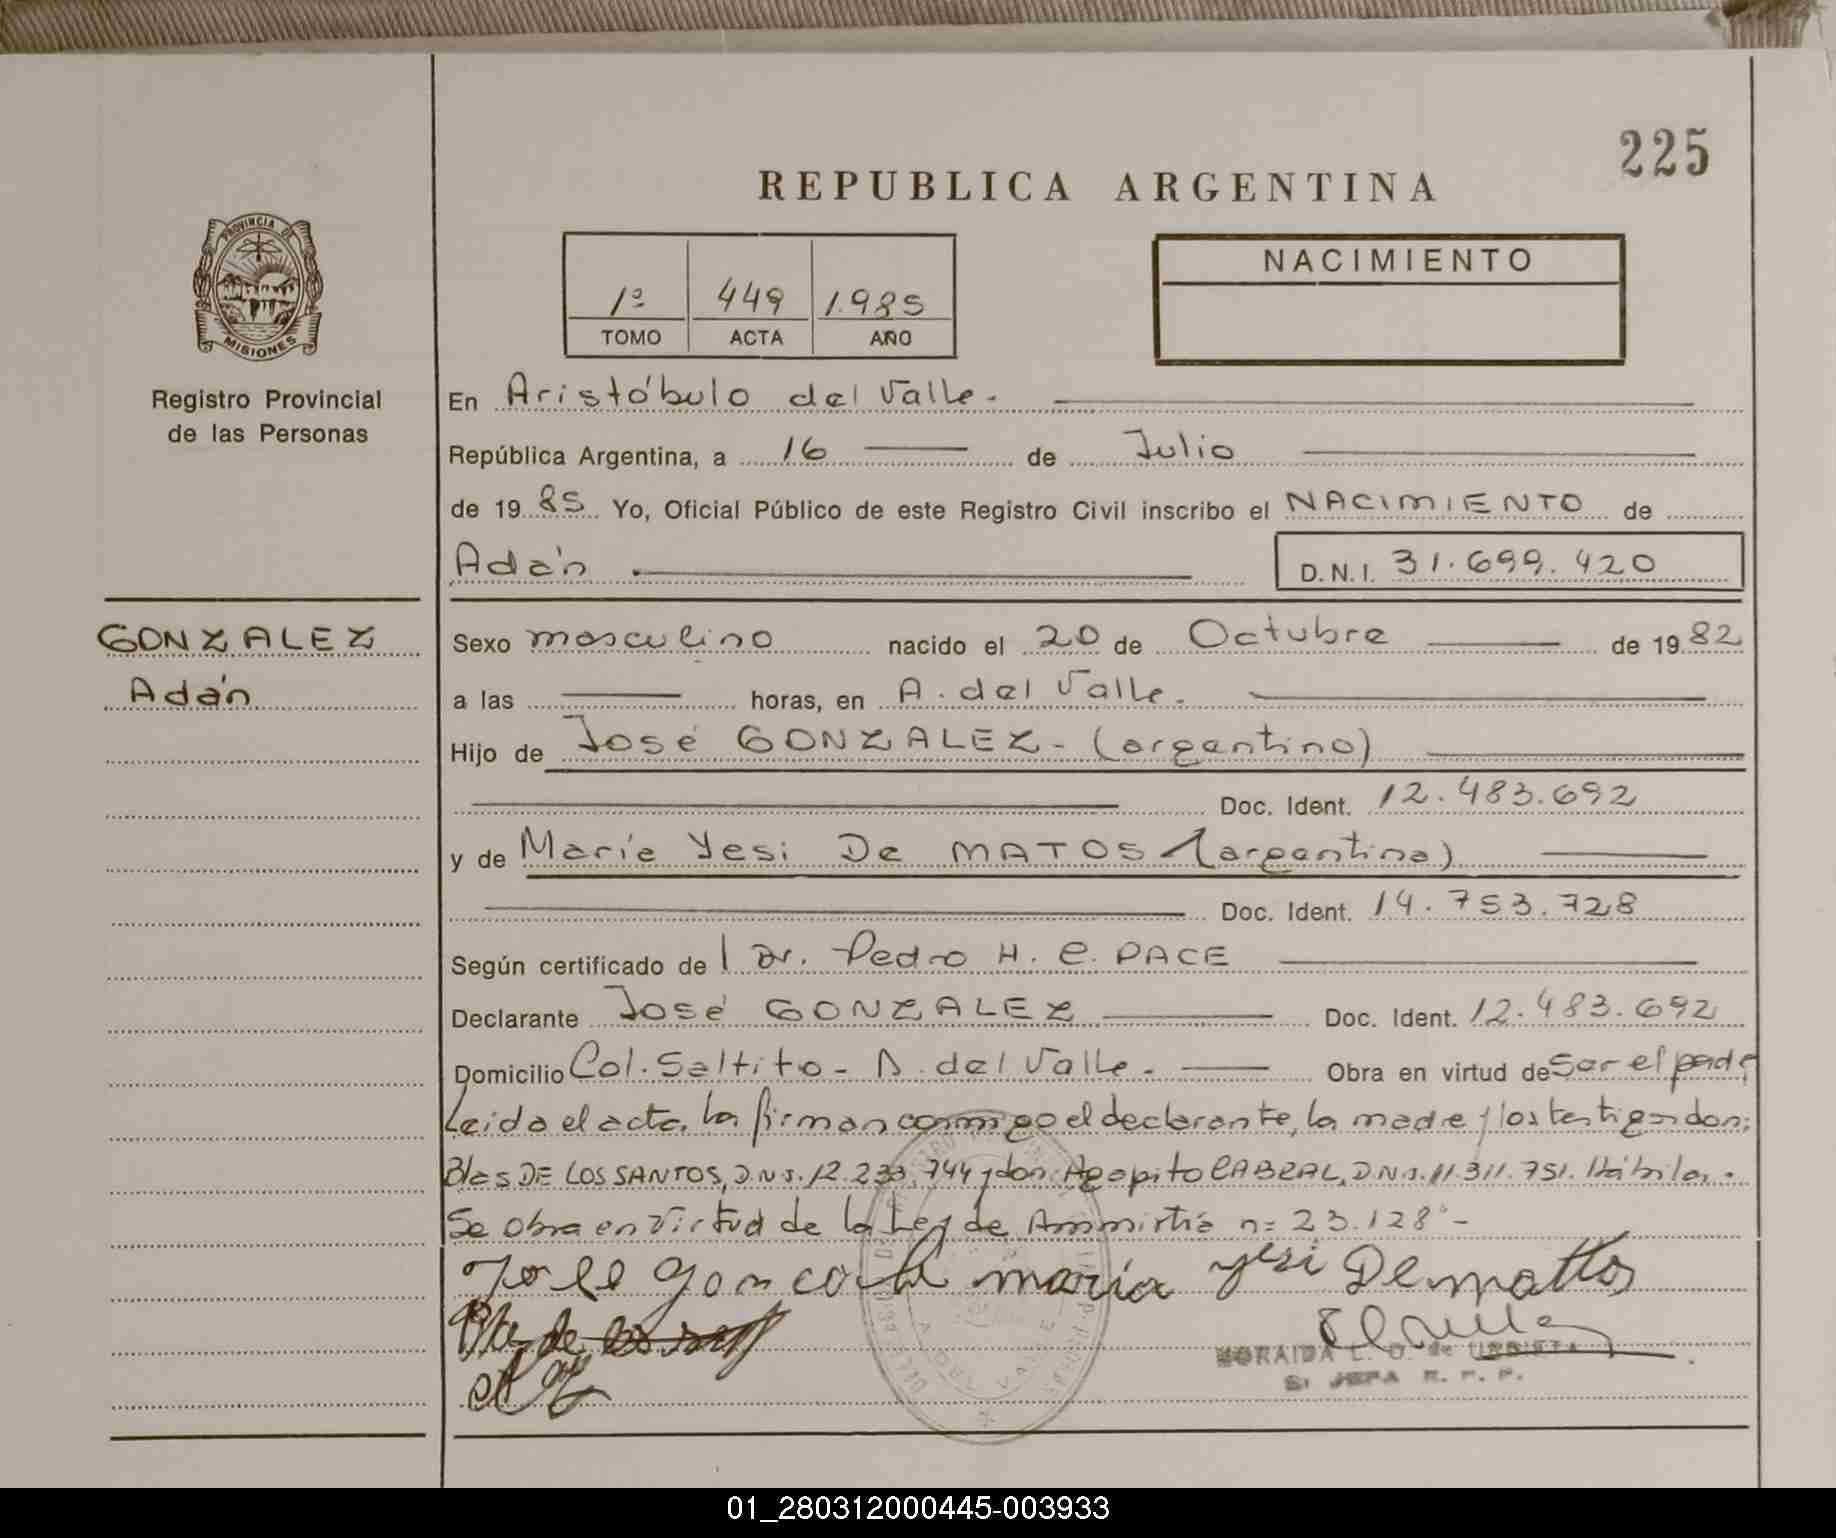 225
REPUBLICA ARGENTINA
PROVINCIA DE
MISIONES
Registro Provincial
de las Personas
1º 449 1.985
TOMO ACTA AÑO
NACIMIENTO
En Aristóbulo del Valle.
República Argentina, a 16 de Julio
de 19 85 Yo, Oficial Público de este Registro Civil inscribo el NACIMIENTO de
Adán D.N.I. 31.699.420
GONZALEZ
Adán
Sexo masculino nacido el 20 de Octubre de 19 82
a las horas, en A. del Valle.
Hijo de José GONZALEZ - (argentino)
Doc. Ident. 12.483.692
y de María Yesi De MATOS (argentina)
Doc. Ident. 14.753.728
Según certificado de Dr. Pedro H. C. PACE
Declarante José GONZALEZ Doc. Ident. 12.483.692
Domicilio Col. Saltito - A. del Valle. - Obra en virtud de Ser el padre
Leida el acta, la firman conmigo el declarante, la madre y los testigos don:
Blas DE LOS SANTOS, D.N.I. 12.233.744 y don: Agapito CABRAL, D.N.I. 11.311.751. Hábiles.
Se obra en virtud de la Ley de Amnistía nº 23.128 -
maría yesi De mattos
L. O. de URRIETA
JEFA R. P. P.
01_280312000445-003933